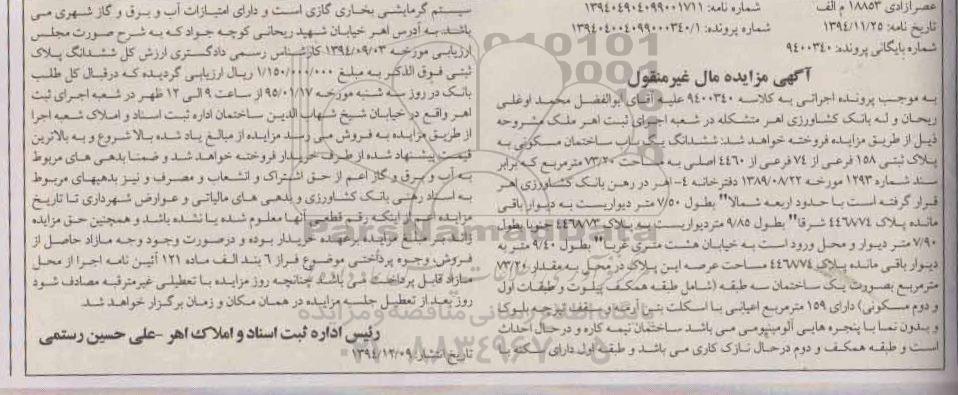 عصرآزادی ۱۸۸۵۳ م الف
شماره نامه: ۱۳۹۴۰۴۹۰۴۰۹۹۰۰۱۷۱۱
تاریخ نامه: ۱۳۹۴/۱۱/۲۵
شماره پرونده: ۱۳۹۴۰۴۰۰۴۰۹۹۰۰۰۳۴۰/۱
شماره بایگانی پرونده: ۹۴۰۰۳۴۰
آگهی مزایده مال غیرمنقول
به موجب پرونده اجرائی به کلاسه ۹۴۰۰۳۴۰ علیه آقای ابوالفضل محمد اوغلی
ریحان و له بانک کشاورزی اهر متشکله در شعبه اجرای ثبت اهر ملک مشروحه
ذیل از طریق مزایده فروخته خواهد شد: ششدانگ یک باب ساختمان مسکونی به
پلاک ثبتی ۱۵۸ فرعی از ۷۴ فرعی از ۴۴۶۰ اصلی به مساحت ۷۳/۲۰ مترمربع که برابر
سند شماره ۱۲۹۳ مورخه ۱۳۸۹/۰۸/۲۲ دفترخانه ۴- اهر در رهن بانک کشاورزی اهر
قرار گرفته است با حدود اربعه شمالا" بطول ۷/۵۰ متر دیواریست به دیوار باقی
مانده پلاک ۴۴۶۸/۷۴ شرقا" بطول ۹/۸۵ متردیواریست به پلاک ۴۴۶۸/۷۳ جنوبا بطول
۷/۹۰ متر دیوار و محل ورود است به خیابان هشت متری غربا" بطول ۹/۴۰ متر به
دیوار باقی مانده پلاک ۴۴۶۸/۷۴ مساحت عرصه این پلاک در محل به مقدار ۷۳/۲۰
مترمربع بصورت یک ساختمان سه طبقه (شامل طبقه همکف پیلوت و طبقات اول
و دوم مسکونی) دارای ۱۵۹ مترمربع اعیانی با اسکلت بتن آرمه و سقف تیرچه بلوک
و بدون نما با پنجره هایی آلومینیومی می باشد ساختمان نیمه کاره و در حال احداث
است و طبقه همکف و دوم درحال نازک کاری می باشد و طبقه اول دارای سکنه با
سیستم گرمایشی بخاری گازی است و دارای امتیازات آب و برق و گاز شهری می
باشد. به آدرس اهر خیابان شهید ریحانی کوچه جواد که به شرح صورت مجلس
ارزیابی مورخه ۱۳۹۴/۰۹/۰۳ کارشناس رسمی دادگستری ارزش کل ششدانگ پلاک
ثبتی فوق الذکر به مبلغ ۱/۱۵۰/۰۰۰/۰۰۰ ریال ارزیابی گردیده که درقبال کل طلب
بانک در روز سه شنبه مورخه ۹۵/۰۱/۱۷ از ساعت ۹ الی ۱۲ ظهر در شعبه اجرای ثبت
اهر واقع در خیابان شیخ شهاب الدین ساختمان اداره ثبت اسناد و املاک شعبه اجرا
از طریق مزایده به فروش می رسد مزایده از مبالغ یاد شده بالا شروع و به بالاترین
قیمت پیشنهاد شده از طرف خریدار فروخته خواهد شد و ضمنا بدهی های مربوط
به آب و برق و گاز اعم از حق اشتراک و انشعاب و مصرف و نیز بدهیهای مربوط
به اسناد رهنی بانک کشاورزی و بدهی های مالیاتی و عوارض شهرداری تا تاریخ
مزایده اعم از اینکه رقم قطعی آنها معلوم شده یا نشده باشد و همچنین حق مزایده
زائد بر مبلغ مزایده برعهده خریدار بوده و درصورت وجود وجه مازاد حاصل از
فروش، وجوه پرداختی موضوع فراز ۶ بند الف ماده ۱۲۱ آئین نامه اجرا از محل
مازاد قابل پرداخت می باشد چنانچه روز مزایده با تعطیلی غیرمترقبه مصادف شود
روز بعد از تعطیل جلسه مزایده در همان مکان و زمان برگزار خواهد شد.
رئیس اداره ثبت اسناد و املاک اهر -علی حسین رستمی
تاریخ انتشار: ۱۳۹۴/۱۲/۰۹
ParsNamadData
۰۲۱-۸۸۳۴۹۶۷۰-۵